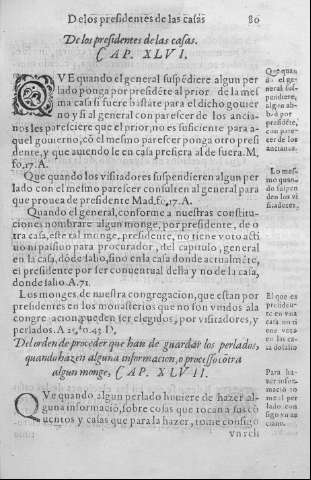 De los presidentes de las casas 80
De los presidentes de las casas.
CAP. XLVI.
QVE quando el general suspēdiere algun per
lado ponga por presidēte al prior de la mes
ma casa si fuere bastāte para el dicho gouier
no y si al general con parescer de los ancia-
nos les paresciere que el prior, no es suficiente para a-
quel gouierno, cō el mesmo parescer ponga otro presi
dente, y que auiendo le en casa presiera al de fuera. M.
fo. 17. A.
Que quando los visitadores suspendieren algun per
lado con el mesmo parescer consulten al general para
que prouea de presidente Mad. fo. 17. A.
Quando el general, conforme a nuestras constitu-
ciones nombrare algun monge, por presidente, de o
tra casa, este tal monge, presidente, no tiene voto acti
uo ni passiuo para procurador, del capitulo, general
en la casa, dōde salio, sino en la casa donde actualmēte,
es presidente por ser conuentual della y no de la casa,
donde salio. A. 71.
Los monges, de nuestra congregacion, que estan por
presidentes en los monasterios que no son vnidos a la
congregacion pueden ser elegidos, por visitadores, y
perlados. A 25. fo. 45 D,
Del orden de proceder que han de guardar los perlados,
quando hazen alguna informacion, o processo cōtra
algun monge, CAP. XLVII.
QVe quando algun perlado huuiere de hazer al-
guna informació, sobre cosas que tocan a sus cō
uentos y casas que para la hazer, tome consigo
vn ech
Que quan
do el ge
neral sus-
pendiere,
algun ab-
bad por
presidēte,
con pare-
cer de los
ancianos.
Lo mes-
mo quan-
do suspen
den los vi
sitadores,
El que es
presiden-
te en vna
casa no ti
ene voto
en la ca-
sa do salio
Para ha-
zer infor-
mació to
me el per
lado con
sigo vn an
ciano.